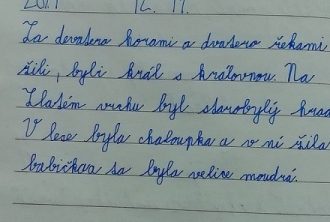 12. 11.
Za devatero horami a dvatero řekami
žili, byli král s královnou. Na
Zlatém vrchu byl starobylý hrad
V lese byla chaloupka a v ní žila
babička a ta byla velice moudrá.